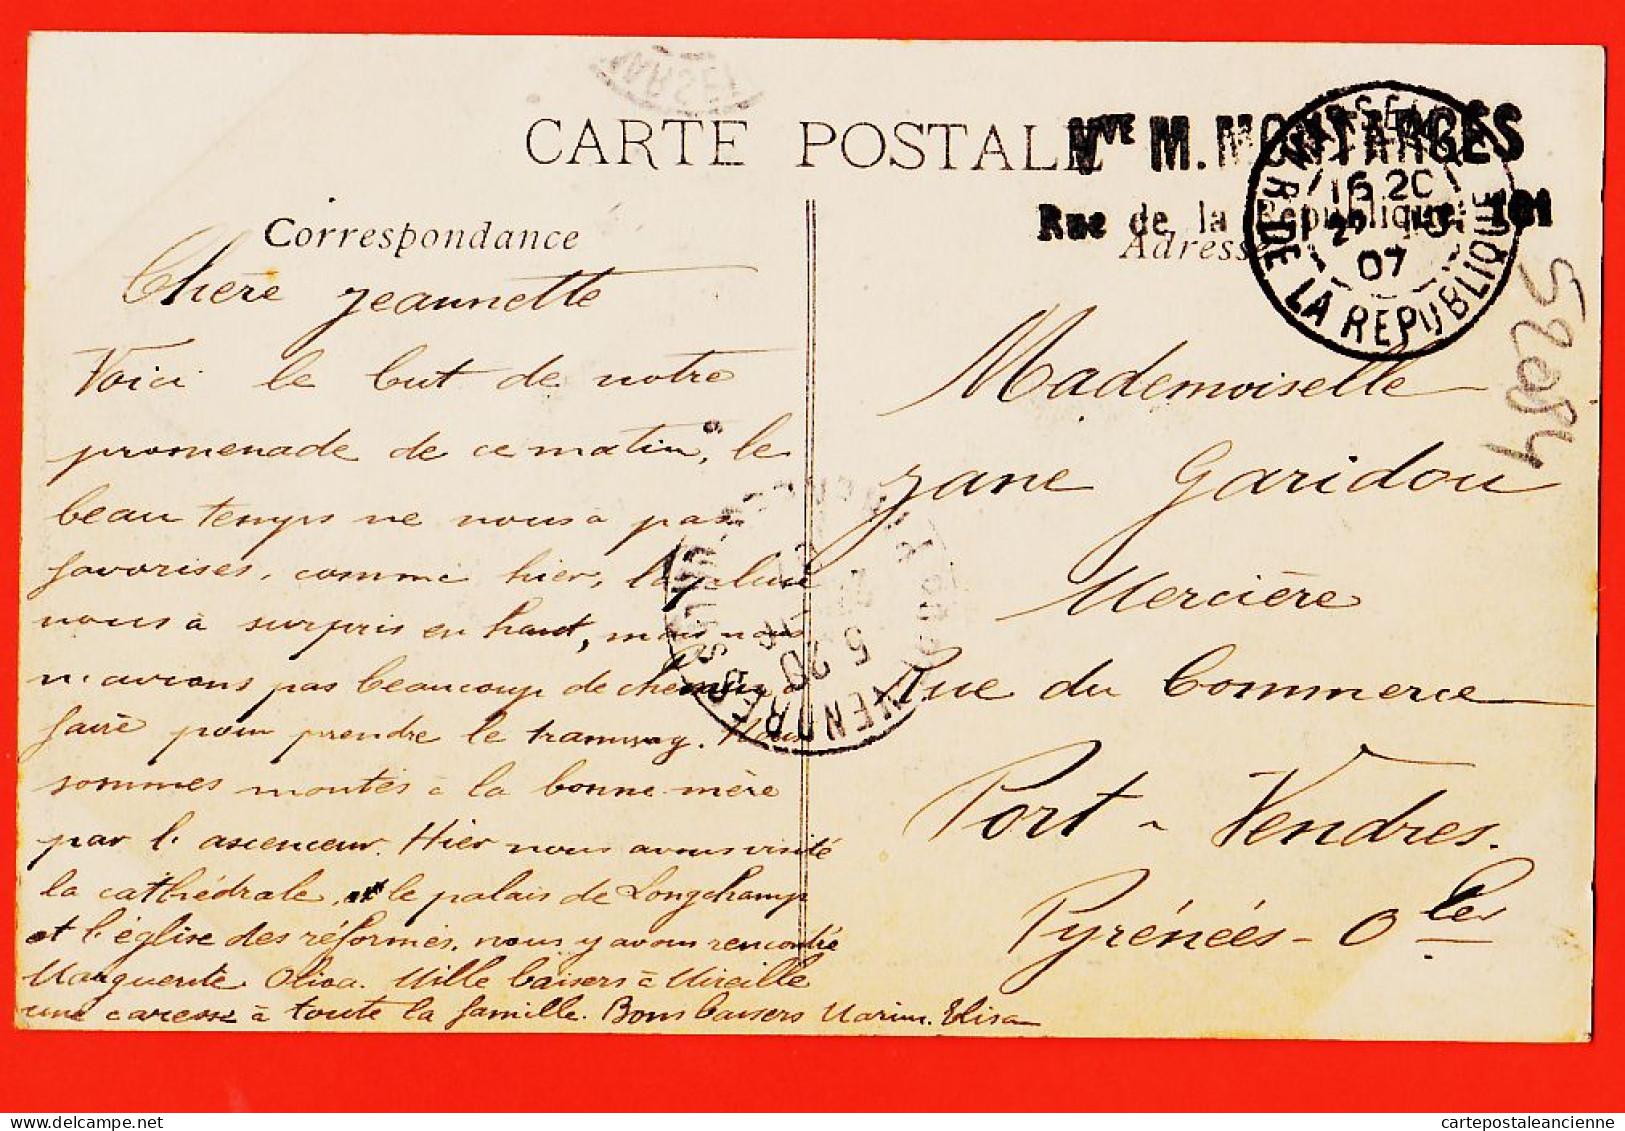 CARTE POSTALE
Vve M. MONTARGES
Rue de la République, 101
Correspondance
Adresse
MARSEILLE
16 20
07
R. DE LA REPUBLIQUE
52084
Chère Jeannette
Voici le but de notre
promenade de ce matin, le
beau temps ne nous a pas
favorisés, comme hier, la pluie
nous a surpris en haut, mais nous
n'avions pas beaucoup de chemin à
faire pour prendre le tramway. Nous
sommes montés à la bonne-mère
par l'ascenceur. Hier nous avons visité
la cathédrale, le palais de Longchamp
et l'église des réformés, nous y avons rencontré
Marguerite Oliva. Mille baisers à Mireille
une caresse à toute la famille. Bons baisers Marius. Elisa
Mademoiselle
Jane Garidou
Mercière
Rue du Commerce
Port-Vendres.
Pyrénées-Oles
PORT VENDRES
5 20
cartepostaleancienne